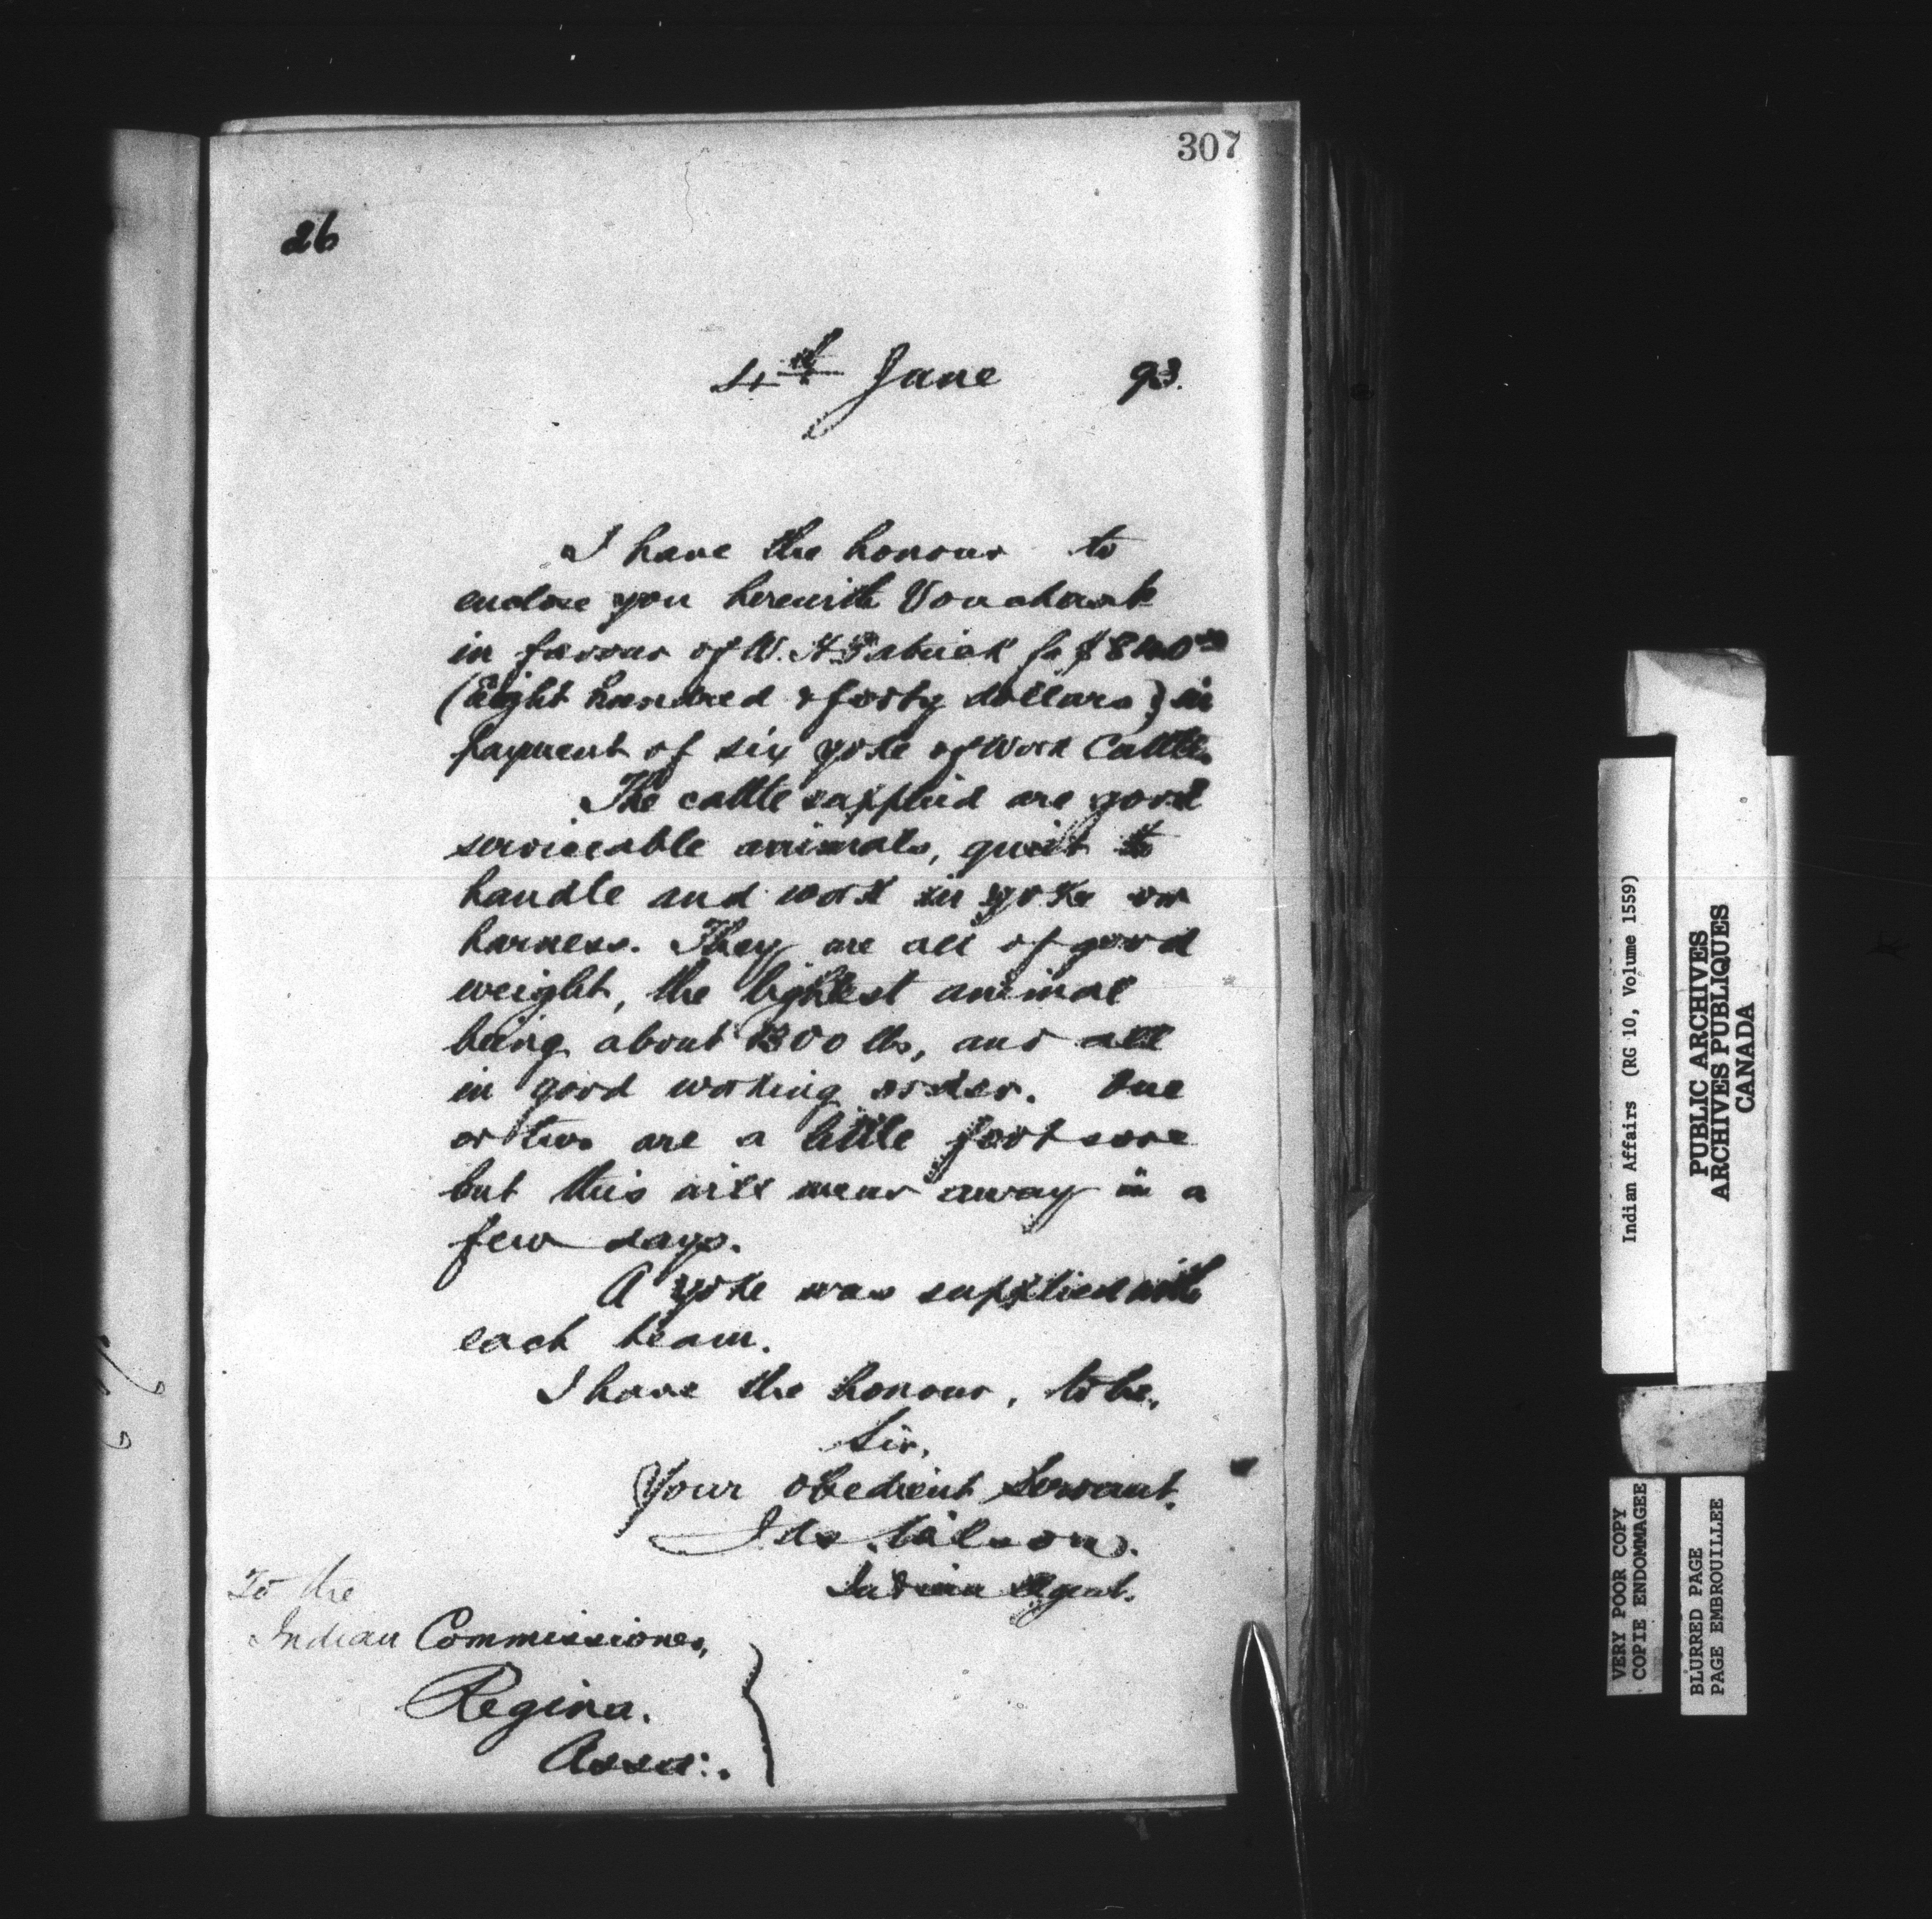 307
26
4th June 93.
I have the honour to
enclose you herewith Voucher
in favour of W. H. Patrick for $840.00
(Eight hundred & forty dollars) in
payment of six yoke of Work Cattle.
The cattle supplied are good
serviceable animals, quiet to
handle and work in yoke or
harness. They are all of good
weight, the lightest animal
being about 1300 lbs, and all
in good working order. One
or two are a little foot sore
but this will wear away in a
few days.
A yoke was supplied with
each team.
I have the honour, to be,
Sir,
Your obedient Servant.
Jas. Wilson.
Indian Agent.
To the
Indian Commissioner,
Regina.
Assa:.
Indian Affairs (RG 10, Volume 1559)
PUBLIC ARCHIVES
ARCHIVES PUBLIQUES
CANADA
VERY POOR COPY
COPIE ENDOMMAGEE
BLURRED PAGE
PAGE EMBROUILLEE